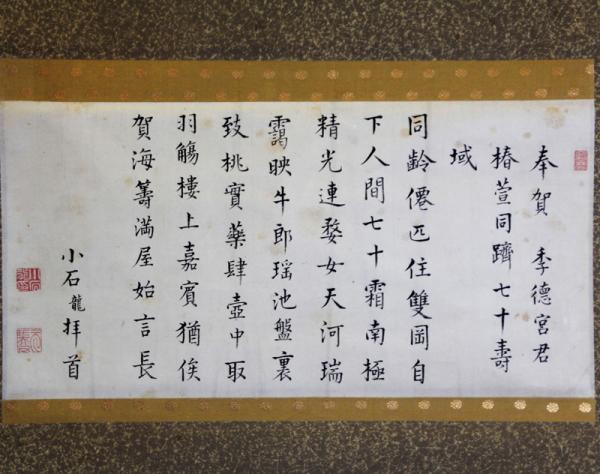 奉賀　季德宮君
椿萱同躋七十壽
域
同齡僊匹住雙岡自
下人間七十霜南極
精光連婺女天河瑞
靄映牛郎瑶池盤裏
致桃實藥肆壺中取
羽觴樓上嘉賓猶俟
賀海籌滿屋始言長
小石龍拝首